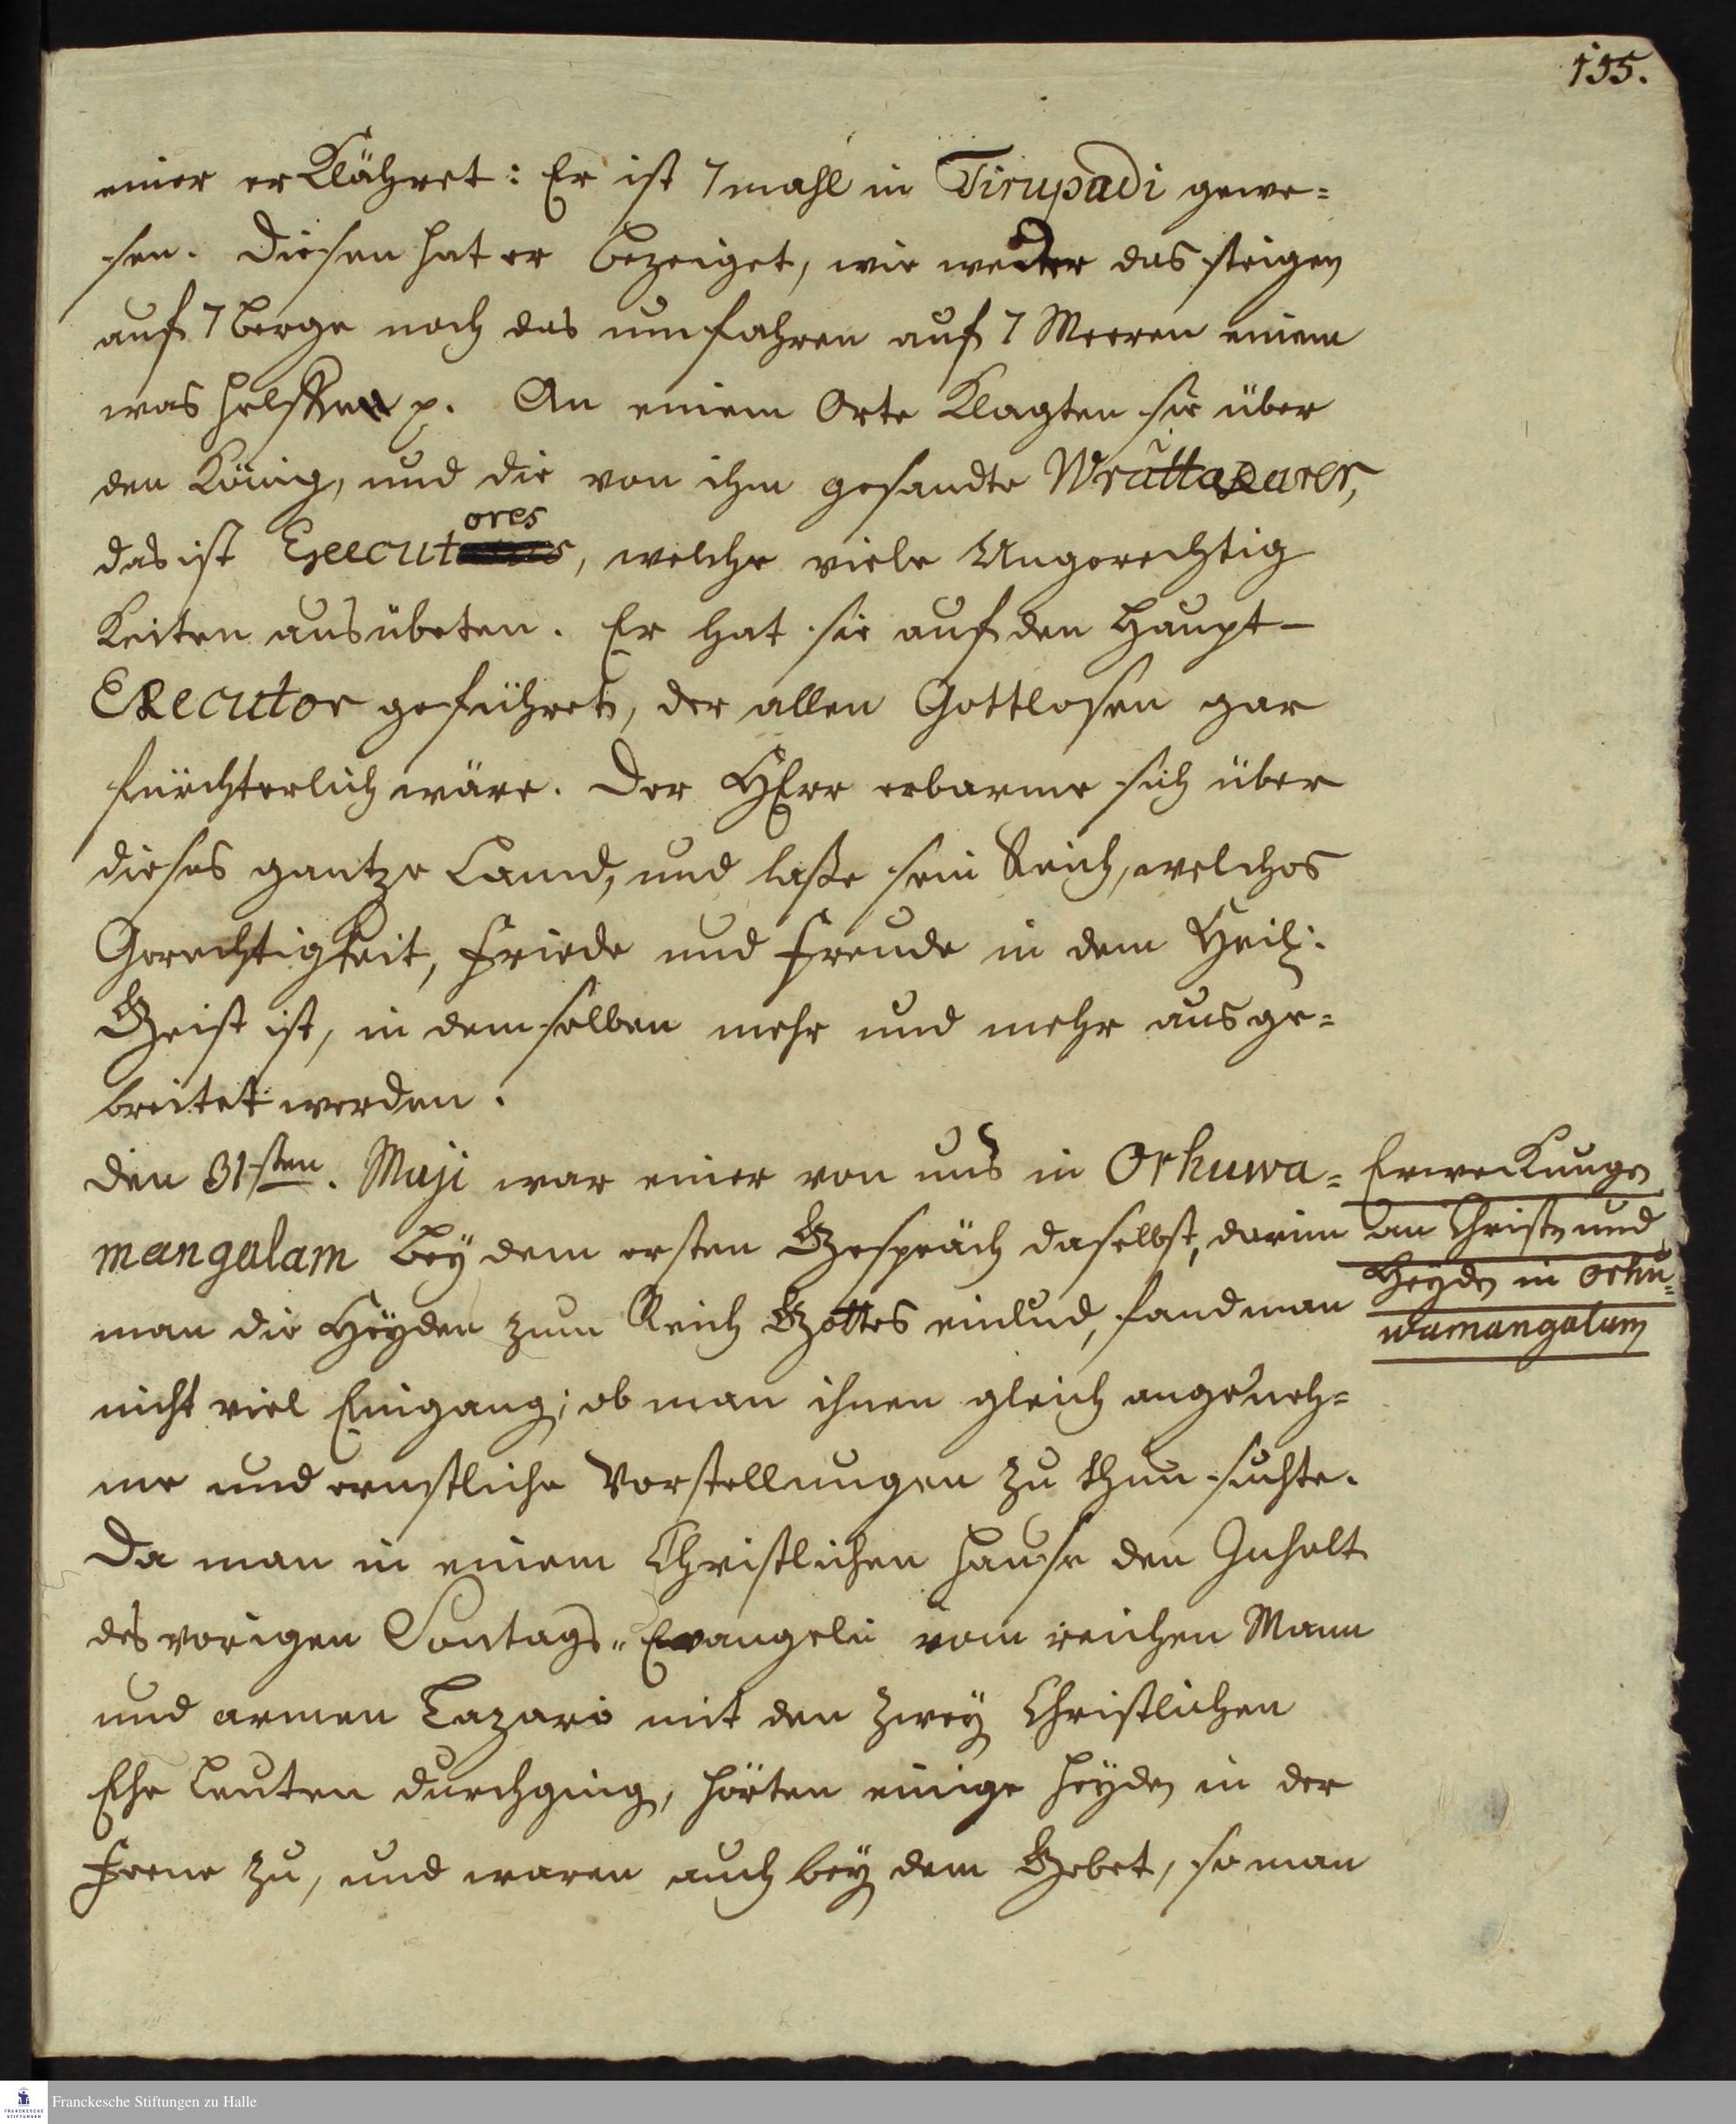 155.
einer erklähret: Er ist 7 mahl in Tirupadi gewe=
sen. Diesen hat er bezeiget, wie weder das steigen
auf 7 Berge noch das umfahren auf 7 Meeren einem
was helffen p. An einem Orte klagten sie über
den König, und die von ihm gesandte
das ist Executores, welche viele Ungerechtig
keiten ausübeten. Er hat sie auf den Haupt-
Executor geführet, der allen Gottlosen gar
fürchterlich wäre. Der HErr erbarme sich über
dieses gantze Land, und laße sein Reich, welches
Gerechtigkeit, Friede und Freude in dem Heil:
Geist ist, in demselben mehr und mehr ausge=
breitet werden.
Den 31sten. Maji war einer von uns in Orhuwa=
mangalam bey dem ersten Gespräch daselbst, darinn
man die Heyden zum Reich Gottes einlud, fand man
nicht viel Eingang; ob man ihnen gleich angeneh=
me und ernstliche Vorstellungen zu thun suchte.
Da man in einem Christlichen Hause den Inhalt
des vorigen Sontags-Evangelii vom reichen Mann
und armen Lazaro mit den zwey Christlichen
Ehe Leuten durchging, hörten einige Heyden in der
Ferne zu, und waren auch bey dem Gebet, so man
Erweckungen
an Christen und
Heyden in Orhu=
wamangalam
Franckesche Stiftungen zu Halle
FRANCKESCHE
STIFTUNGEN